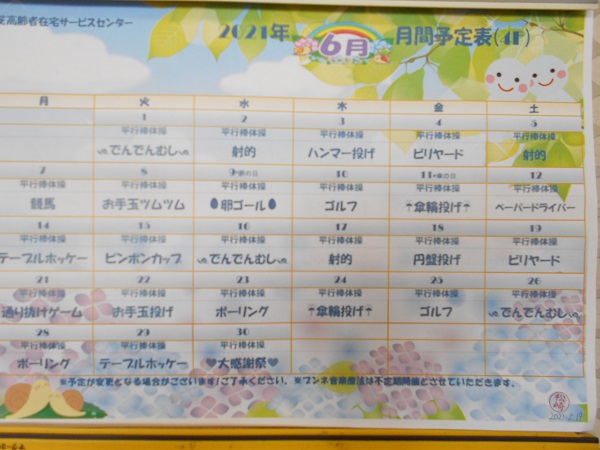 芝高齢者在宅サービスセンター
2021年 6月 月間予定表(4F)
月 火 水 木 金 土
1 2 3 4 5
平行棒体操 平行棒体操 平行棒体操 平行棒体操 平行棒体操
でんでんむし 射的 ハンマー投げ ビリヤード 射的
7 8 9・卵の日 10 11・傘の日 12
平行棒体操 平行棒体操 平行棒体操 平行棒体操 平行棒体操 平行棒体操
競馬 お手玉ツムツム 卵ゴール ゴルフ 傘輪投げ ペーパードライバー
14 15 16 17 18 19
平行棒体操 平行棒体操 平行棒体操 平行棒体操 平行棒体操 平行棒体操
テーブルホッケー ピンポンカップ でんでんむし 射的 円盤投げ ビリヤード
21 22 23 24 25 26
平行棒体操 平行棒体操 平行棒体操 平行棒体操 平行棒体操 平行棒体操
通り抜けゲーム お手玉投げ ボーリング 傘輪投げ ゴルフ でんでんむし
28 29 30
平行棒体操 平行棒体操 平行棒体操
ボーリング テーブルホッケー 大感謝祭
※予定が変更となる場合がございます!ご了承ください。 ※ブンネ音楽療法は不定期開催とさせていただきます。
松崎